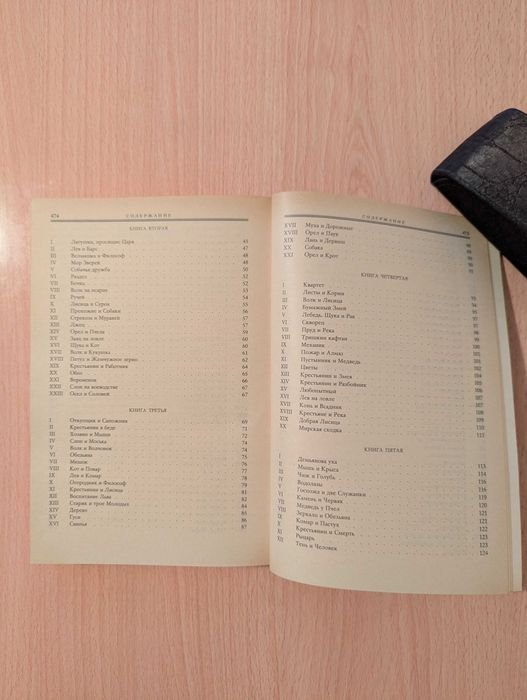 474 СОДЕРЖАНИЕ
КНИГА ВТОРАЯ
I Лягушки, просящие Царя 45
II Лев и Барс 47
III Вельможа и Философ 48
IV Мор Зверей 48
V Собачья дружба 50
VI Раздел 52
VII Бочка 52
VIII Волк на псарне 53
IX Ручей 54
X Лисица и Сурок 55
XI Прохожие и Собаки 56
XII Стрекоза и Муравей 57
XIII Лжец 57
XIV Орел и Пчела 59
XV Заяц на ловле 60
XVI Щука и Кот 60
XVII Волк и Кукушка 61
XVIII Петух и Жемчужное зерно 62
XIX Крестьянин и Работник 64
XX Обоз 65
XXI Вороненок 66
XXII Слон на воеводстве 67
XXIII Осел и Соловей 67
КНИГА ТРЕТЬЯ
I Откупщик и Сапожник 69
II Крестьянин в беде 71
III Хозяин и Мыши 72
IV Слон и Моська 74
V Волк и Волчонок 74
VI Обезьяна 75
VII Мешок 76
VIII Кот и Повар 77
IX Лев и Комар 78
X Огородник и Философ 79
XI Крестьянин и Лисица 81
XII Воспитание Льва 82
XIII Старик и трое Молодых 84
XIV Дерево 85
XV Гуси 86
XVI Свинья 87
СОДЕРЖАНИЕ 475
XVII Муха и Дорожные
XVIII Орел и Паук
XIX Лань и Дервиш
XX Собака
XXI Орел и Крот
КНИГА ЧЕТВЕРТАЯ
I Квартет
II Листы и Корни
III Волк и Лисица
IV Бумажный Змей
V Лебедь, Щука и Рак
VI Скворец
VII Пруд и Река
VIII Тришкин кафтан
IX Механик
X Пожар и Алмаз
XI Пустынник и Медведь
XII Цветы
XIII Крестьянин и Змея
XIV Крестьянин и Разбойник
XV Любопытный
XVI Лев на ловле
XVII Конь и Всадник
XVIII Крестьяне и Река
XIX Добрая Лисица
XX Мирская сходка
КНИГА ПЯТАЯ
I Демьянова уха
II Мышь и Крыса
III Чиж и Голубь
IV Водолазы
V Госпожа и две Служанки
VI Камень и Червяк
VII Медведь у Пчел
VIII Зеркало и Обезьяна
IX Комар и Пастух
X Крестьянин и Смерть
XI Рыцарь
XII Тень и Человек